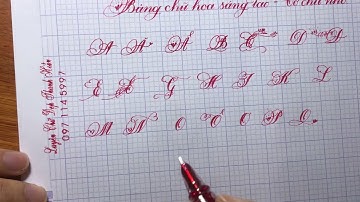 Bảng chữ hoa sáng tác - Cỡ chữ nhỏ
A Ă Â B C D Đ
E Ê G H I K L
M N O Ô Ơ P Q
Luyện Chữ Đẹp Thanh Hiền
0971145997